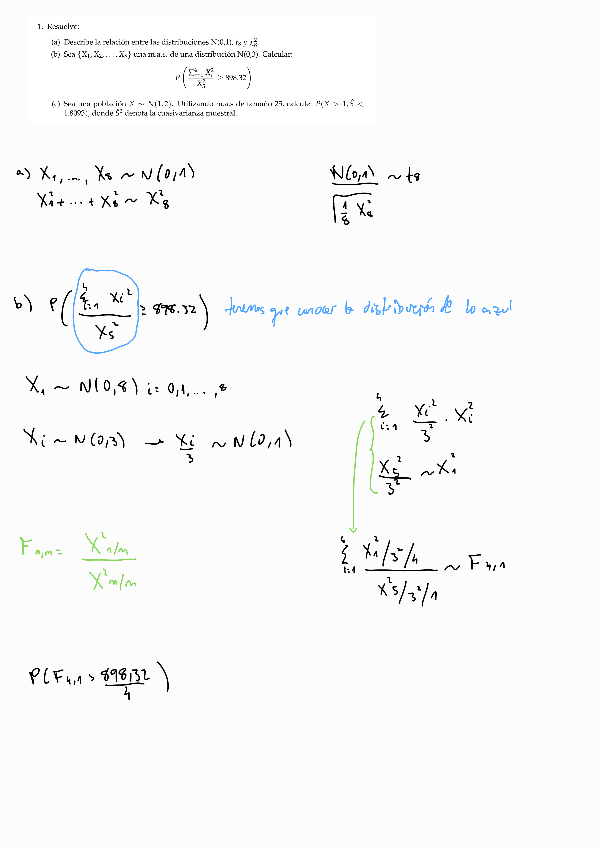 1. Resuelve:
(a) Describe la relación entre las distribuciones N(0,1), t₈ y χ²₈.
(b) Sea {X₁, X₂, . . . , X₅} una m.a.s. de una distribución N(0,3). Calcular:
P ( Σ⁴ᵢ₌₁ Xᵢ² / X₅² ≥ 898.32 )
(c) Sea una población X ~ N(1, 2). Utilizando m.a.s de tamaño 25, calcule P(X̄ > 1, Ŝ <
1.8093), donde Ŝ² denota la cuasivarianza muestral.
a) X₁, ..., X₈ ~ N(0,1)
X₁² + ... + X₈² ~ X²₈
N(0,1) / √(1/8 X²₈) ~ t₈
b) P ( Σ⁴ᵢ₌₁ Xi² / X₅² ≥ 898.32 ) tenemos que conocer la distribución de lo azul
X₁ ~ N(0,8) i = 0,1, ..., 8
Xi ~ N(0,3) → Xi/3 ~ N(0,1)
Σ⁴ᵢ₌₁ Xi²/3² · X²ᵢ
X₅²/3² ~ X²₁
F n,m = X²n/n / X²m/m
Σ⁴ᵢ₌₁ X²₁/3²/4 / X²5/3²/1 ~ F 4,1
P(F 4,1 > 898,32/4)